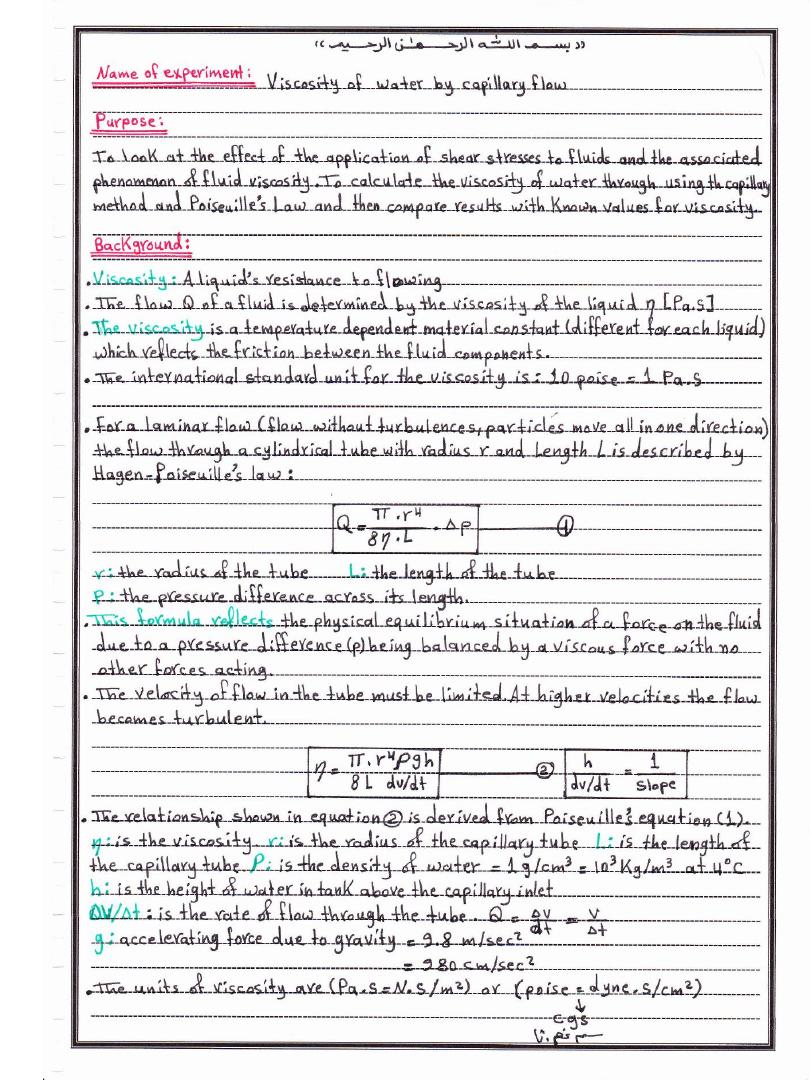 (( بسم الله الرحمن الرحيم ))
Name of experiment: Viscosity of water by capillary flow
Purpose:
To look at the effect of the application of shear stresses to fluids and the associated
phenomenon of fluid viscosity. To calculate the viscosity of water through using th capillary
method and Poiseuille's Law and then compare results with Known values for viscosity.
Background:
• Viscosity: A liquid's resistance to flowing
• The flow Q of a fluid is determined by the viscosity of the liquid η [Pa.S]
• The viscosity is a temperature dependent material constant (different for each liquid)
which reflects the friction between the fluid components.
• The international standard unit for the viscosity is: 10 poise = 1 Pa.S
• For a laminar flow (flow without turbulences, particles move all in one direction)
the flow through a cylindrical tube with radius r and Length L is described by
Hagen-Poiseuille's law:
Q = π.r⁴ / 8η.L . Δp ——— ①
r: the radius of the tube L: the length of the tube
P: the pressure difference across its length.
• This formula reflects the physical equilibrium situation of a force on the fluid
due to a pressure difference (p) being balanced by a viscous force with no
other forces acting.
• The velocity of flow in the tube must be limited. At higher velocities the flow
becomes turbulent.
η = π.r⁴ρgh / 8L dv/dt ——— ② h / dv/dt = 1 / slope
• The relationship shown in equation ② is derived from Poiseuille's equation (1).
η: is the viscosity r: is the radius of the capillary tube L: is the length of
the capillary tube ρ: is the density of water = 1 g/cm³ = 10³ Kg/m³ at 4°C
h: is the height of water in tank above the capillary inlet
ΔV/Δt: is the rate of flow through the tube Q = ΔV/dt = V/Δt
g: accelerating force due to gravity = 9.8 m/sec²
= 980 cm/sec²
• The units of viscosity are (Pa.S = N.S/m²) or (poise = dyne.s/cm²)
cgs